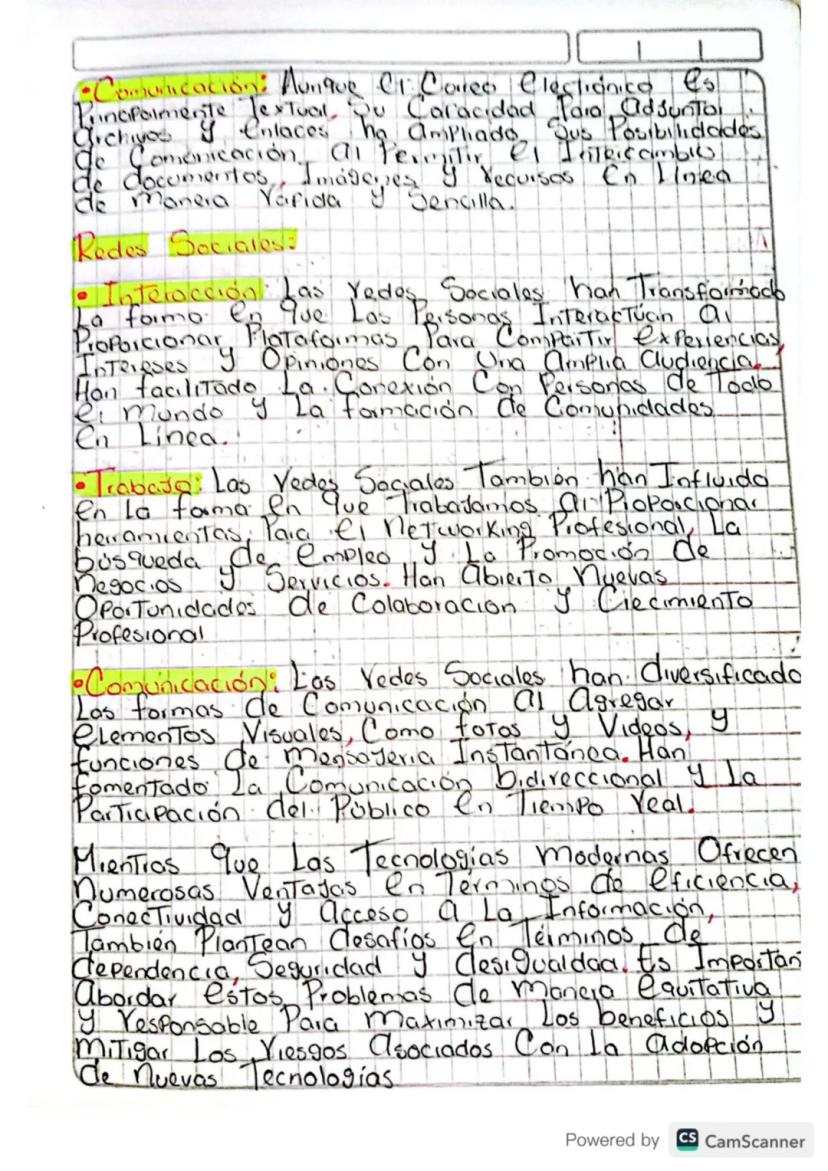 •Comunicación: Aunque el Correo electrónico es
Principalmente Textual, Su Capacidad Para adjuntar
archivos y enlaces ha ampliado Sus Posibilidades
de Comunicación al Permitir el Intercambio
de documentos, Imágenes y recursos en Línea
de manera rápida y Sencilla.
Redes Sociales:
• Interacción: Las redes Sociales han Transformado
La forma en que Las Personas Interactúan al
Proporcionar Plataformas Para Compartir experiencias,
Intereses y Opiniones Con Una amplia audiencia.
Han facilitado La Conexión Con Personas de Todo
el mundo y La formación de Comunidades
en Línea.
•Trabajo: Las redes Sociales También han Influido
en La forma en que Trabajamos al Proporcionar
herramientas Para el networking Profesional, La
búsqueda de empleo y La Promoción de
negocios y Servicios. Han Abierto nuevas
Oportunidades de Colaboración y Crecimiento
Profesional
•Comunicación: Las redes Sociales han diversificado
Las formas de Comunicación al Agregar
elementos Visuales, Como fotos y Videos, y
funciones de mensajería Instantánea. Han
fomentado La Comunicación bidireccional y La
Participación del Público en Tiempo real.
Mientras que Las Tecnologías modernas Ofrecen
numerosas Ventajas en Términos de eficiencia,
Conectividad y acceso a La Información,
También Plantean desafíos en Términos de
dependencia, Seguridad y desigualdad. Es Importan
abordar estos Problemas de manera equitativa
y responsable Para maximizar Los beneficios y
mitigar Los riesgos asociados Con La adopción
de nuevas Tecnologías
Powered by CS CamScanner